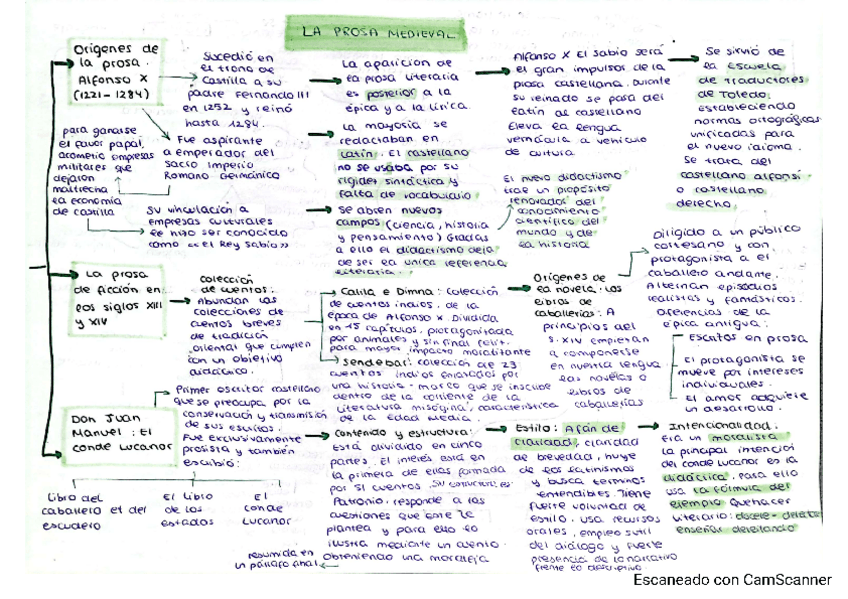 LA PROSA MEDIEVAL
Orígenes de
la prosa.
Alfonso X
(1221-1284)
Sucedió en
el trono de
Castilla a su
padre Fernando III
en 1252 y reinó
hasta 1284.
para ganarse
el favor papal,
acometió empresas
militares que
dejaron
maltrecha
la economía
de castilla
Fue aspirante
a emperador del
Sacro Imperio
Romano Germánico
Su vinculación a
empresas culturales
le hizo ser conocido
como «el Rey Sabio»
La aparición de
la prosa literaria
es posterior a la
épica y a la lírica.
La mayoría se
redactaban en
latín. El castellano
no se usaba por su
rigidez sintáctica y
falta de vocabulario
Se abren nuevos
campos (ciencia, historia
y pensamiento) Gracias
a ello el didactismo deja
de ser la única referencia
literaria.
Alfonso X El Sabio será
el gran impulsor de la
prosa castellana. Durante
su reinado se pasa del
latín al castellano
Eleva la lengua
vernácula a vehículo
de cultura
El nuevo didactismo
trae un propósito
renovador del
conocimiento
científico del
mundo y de
la historia
Se sirvió de
la Escuela
de Traductores
de Toledo,
estableciendo
normas ortográficas
unificadas para
el nuevo idioma.
Se trata del
castellano alfonsí
o castellano
derecho.
La prosa
de ficción en
los siglos XIII
y XIV
colección
de cuentos:
Abundan las
colecciones de
cuentos breves
de tradición
oriental que cumplen
con un objetivo
didáctico.
Calila e Dimna: colección
de cuentos indios, de la
época de Alfonso X. Dividida
en 15 capítulos, protagonizada
por animales y sin final feliz.
para mayor impacto moralizante
Sendebar: colección de 23
cuentos indios enlazados por
una historia-marco que se inscribe
dentro de la corriente de la
literatura misógina, característica
de la Edad Media.
Orígenes de
la novela. Los
libros de
caballerías: A
principios del
S. XIV empiezan
a componerse
en nuestra lengua
las novelas o
libros de
caballerías
Dirigido a un público
cortesano y con
protagonista a el
caballero andante.
Alternan episodios
realistas y fantásticos.
Diferencias de la
épica antigua:
Escritos en prosa
El protagonista se
mueve por intereses
individuales.
El amor adquiere
un desarrollo.
Don Juan
Manuel: El
conde Lucanor
Primer escritor castellano
que se preocupa por la
conservación y transmisión
de sus escritos.
Fue exclusivamente
prosista y también
escribió:
Libro del
caballero et del
escudero
El libro
de los
estados
El
conde
Lucanor
contenido y estructura:
Está dividido en cinco
partes. El interés está en
la primera de ellas formada
por 51 cuentos. Su
Patronio, responde a las
cuestiones que este le
plantea y para ello lo
ilustra mediante un cuento.
Obteniendo una moraleja
resumida en
un párrafo final
Estilo: Afán de
claridad, claridad
de brevedad, huye
de los latinismos
y busca términos
entendibles. Tiene
fuerte voluntad de
estilo, usa recursos
orales, empleo sutil
del diálogo y fuerte
presencia de lo narrativo
frente lo descriptivo.
Intencionalidad:
Era un moralista
La principal intención
del conde Lucanor es la
didáctica. para ello
usa la fórmula del
ejemplo. Quehacer
literario: docere-delectare
enseñar deleitando
Escaneado con CamScanner